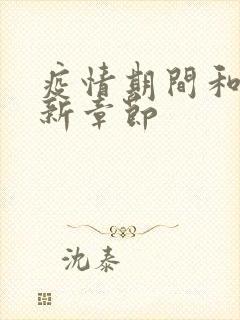 疫情期間和
新章節
沈泰